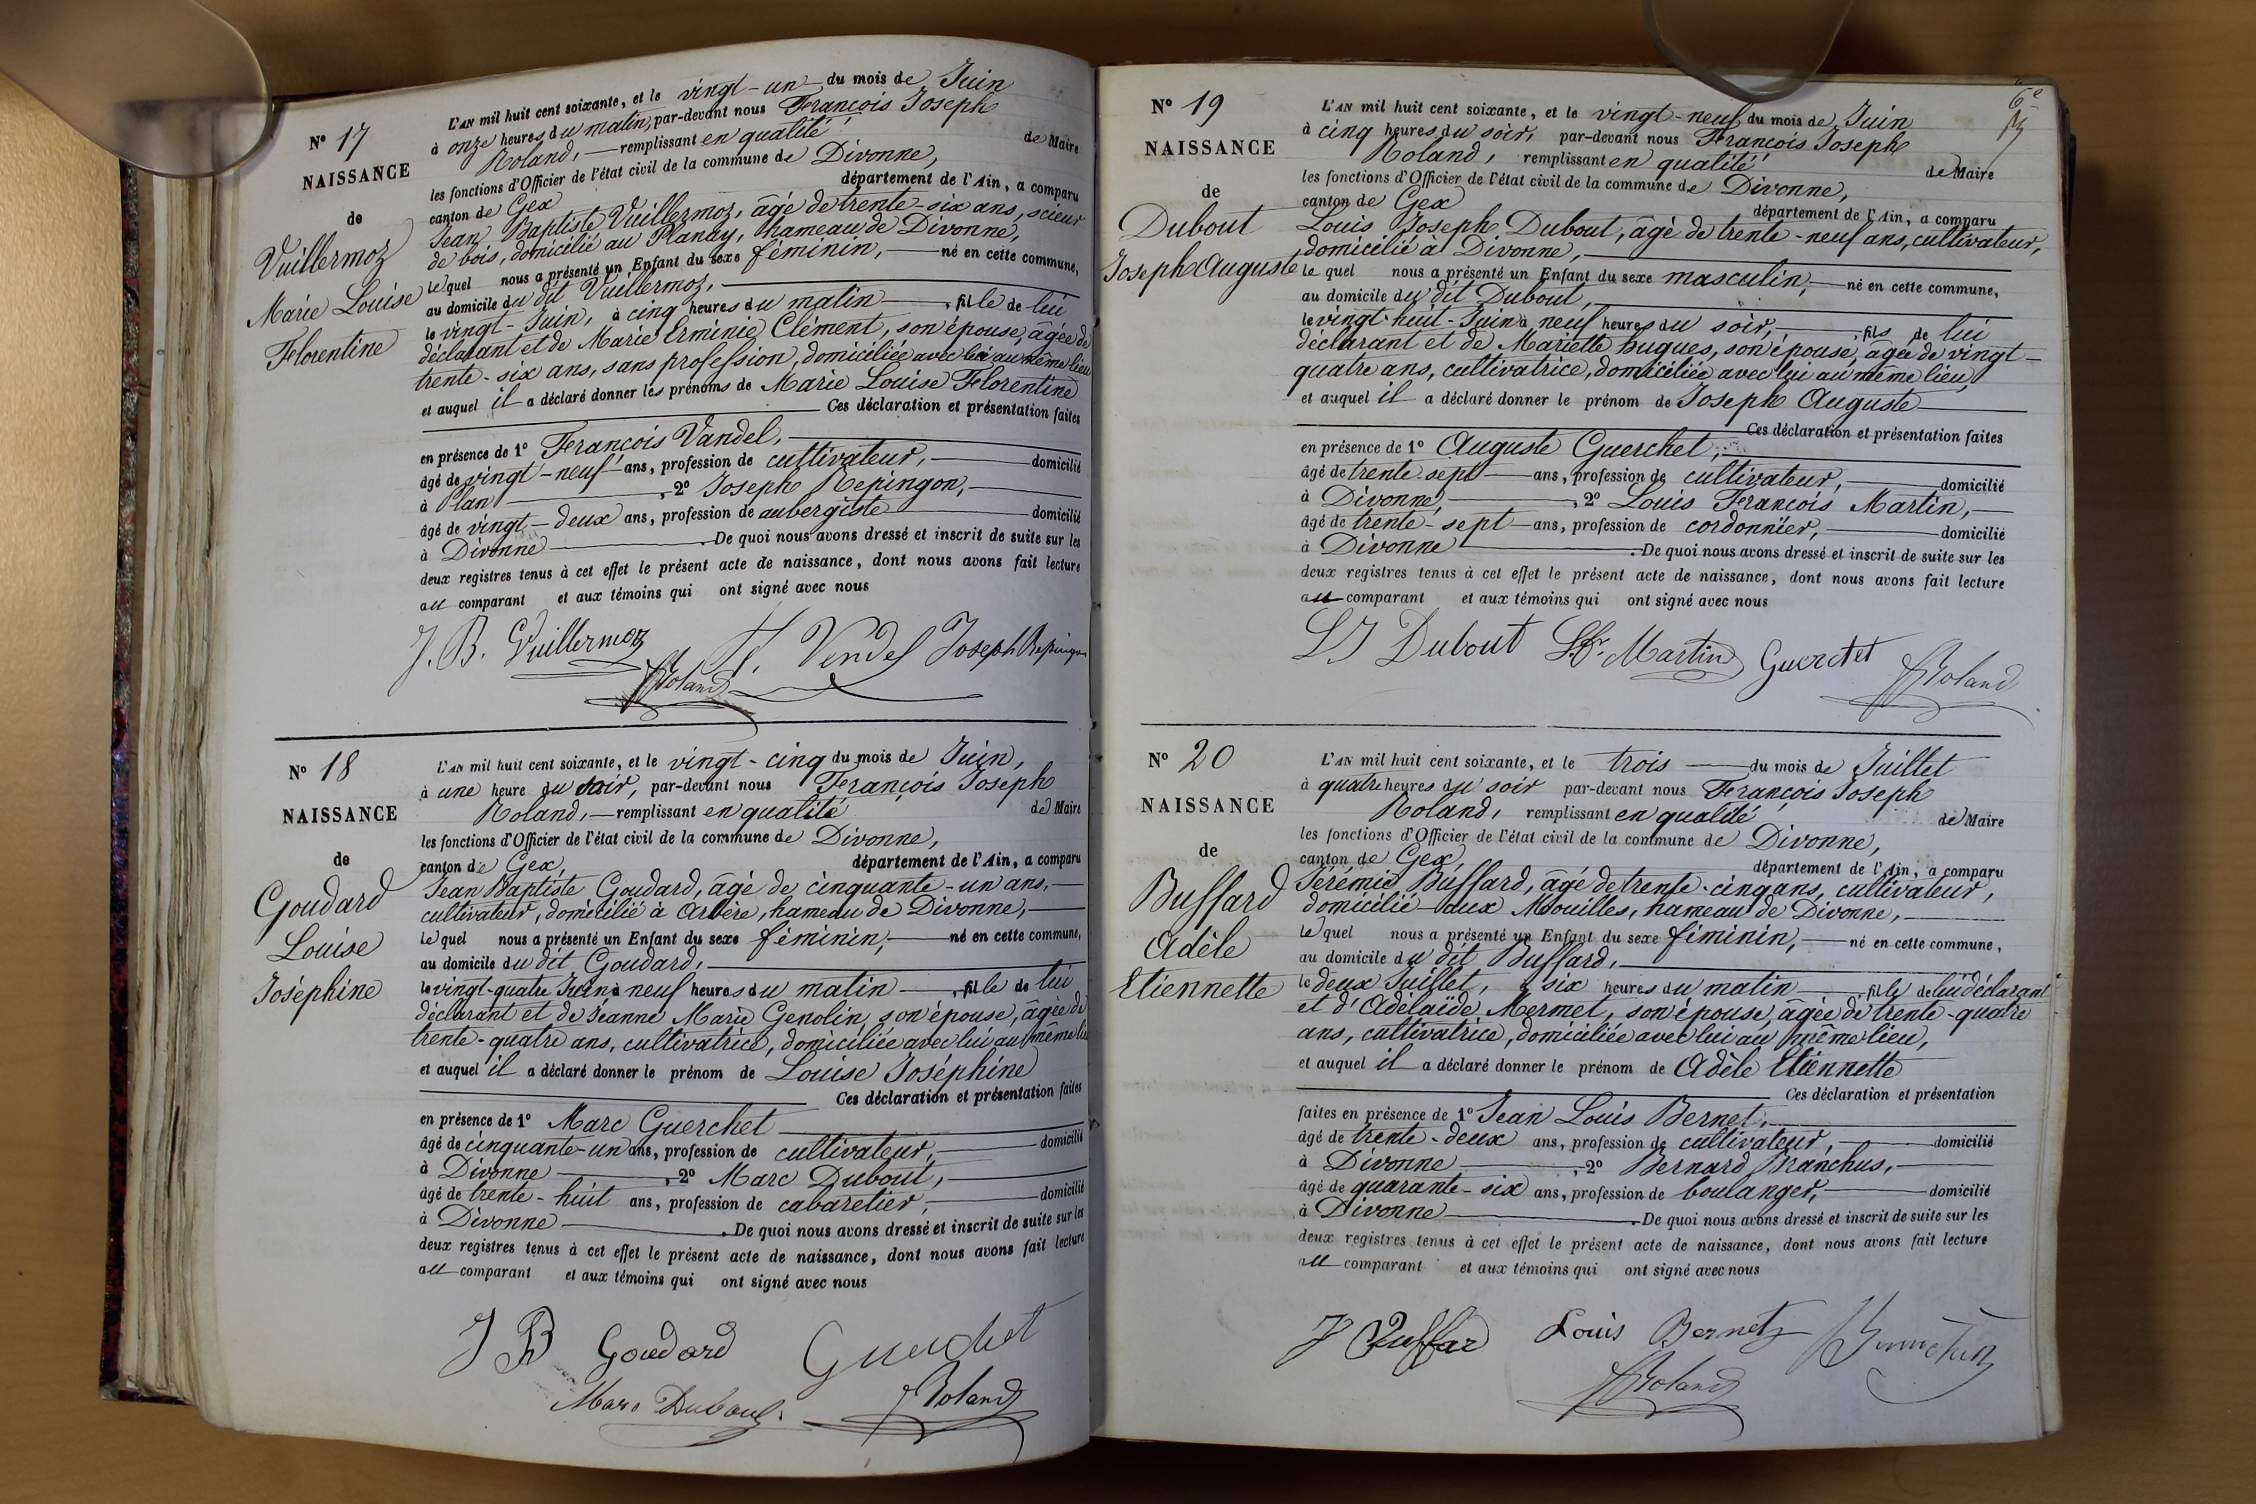 N° 17
NAISSANCE
de
Vuillermoz
Marie Louise
Florentine
L'AN mil huit cent soixante, et le vingt-un du mois de Juin
à onze heures du matin, par-devant nous François Joseph
Roland, remplissant en qualité de Maire
les fonctions d'Officier de l'état civil de la commune de Divonne,
canton de Gex département de l'Ain, a comparu
Jean Baptiste Vuillermoz, âgé de trente-six ans, scieur
de bois, domicilié au Planay, hameau de Divonne,
lequel nous a présenté un Enfant du sexe féminin, né en cette commune,
au domicile du dit Vuillermoz,
le vingt-Juin, à cinq heures du matin, fille de lui
déclarant et de Marie Erminie Clément, son épouse, âgée de
trente-six ans, sans profession, domiciliée avec lui au même lieu
et auquel il a déclaré donner les prénoms de Marie Louise Florentine
Ces déclaration et présentation faites
en présence de 1° François Vandel,
âgé de vingt-neuf ans, profession de cultivateur, domicilié
à Plan, 2° Joseph Repingon,
âgé de vingt-deux ans, profession de aubergiste domicilié
à Divonne. De quoi nous avons dressé et inscrit de suite sur les
deux registres tenus à cet effet le présent acte de naissance, dont nous avons fait lecture
au comparant et aux témoins qui ont signé avec nous
J. B. Vuillermoz F. Vendel Joseph Repingon
Roland
N° 18
NAISSANCE
de
Goudard
Louise
Joséphine
L'AN mil huit cent soixante, et le vingt-cinq du mois de Juin,
à une heure du soir, par-devant nous François Joseph
Roland, remplissant en qualité de Maire
les fonctions d'Officier de l'état civil de la commune de Divonne,
canton de Gex, département de l'Ain, a comparu
Jean Baptiste Goudard, âgé de cinquante-un ans,
cultivateur, domicilié à Arbère, hameau de Divonne,
lequel nous a présenté un Enfant du sexe féminin, né en cette commune,
au domicile du dit Goudard,
le vingt-quatre Juin à neuf heures du matin, fille de lui
déclarant et de Jeanne Marie Genolin, son épouse, âgée de
trente-quatre ans, cultivatrice, domiciliée avec lui au même lieu
et auquel il a déclaré donner le prénom de Louise Joséphine
Ces déclaration et présentation faites
en présence de 1° Marc Guerchet
âgé de cinquante-un ans, profession de cultivateur, domicilié
à Divonne, 2° Marc Dubout,
âgé de trente-huit ans, profession de cabaretier, domicilié
à Divonne. De quoi nous avons dressé et inscrit de suite sur les
deux registres tenus à cet effet le présent acte de naissance, dont nous avons fait lecture
au comparant et aux témoins qui ont signé avec nous
J B Goudard Guerchet
Marc Dubout Roland
6e
N° 19
NAISSANCE
de
Dubout
Joseph Auguste
L'AN mil huit cent soixante, et le vingt-neuf du mois de Juin
à cinq heures du soir, par-devant nous François Joseph
Roland, remplissant en qualité de Maire
les fonctions d'Officier de l'état civil de la commune de Divonne,
canton de Gex département de l'Ain, a comparu
Louis Joseph Dubout, âgé de trente-neuf ans, cultivateur,
domicilié à Divonne,
lequel nous a présenté un Enfant du sexe masculin, né en cette commune,
au domicile du dit Dubout,
le vingt-huit-Juin à neuf heures du soir, fils de lui
déclarant et de Mariette hugues, son épouse, âgée de vingt-
quatre ans, cultivatrice, domiciliée avec lui au même lieu,
et auquel il a déclaré donner le prénom de Joseph Auguste
Ces déclaration et présentation faites
en présence de 1° Auguste Guerchet,
âgé de trente-sept ans, profession de cultivateur, domicilié
à Divonne, 2° Louis François Martin,
âgé de trente-sept ans, profession de cordonnier, domicilié
à Divonne. De quoi nous avons dressé et inscrit de suite sur les
deux registres tenus à cet effet le présent acte de naissance, dont nous avons fait lecture
au comparant et aux témoins qui ont signé avec nous
L J Dubout L. fr. Martin Guerchet Roland
N° 20
NAISSANCE
de
Buffard
Adèle
Etiennette
L'AN mil huit cent soixante, et le trois du mois de Juillet
à quatre heures du soir par-devant nous François Joseph
Roland, remplissant en qualité de Maire
les fonctions d'Officier de l'état civil de la commune de Divonne,
canton de Gex, département de l'Ain, a comparu
Jérémie Buffard, âgé de trente-cinq ans, cultivateur,
domicilié aux Mouilles, hameau de Divonne,
lequel nous a présenté un Enfant du sexe féminin, né en cette commune,
au domicile du dit Buffard,
le deux Juillet, à six heures du matin, fille de lui déclarant
et d'Adélaïde Mermet, son épouse, âgée de trente-quatre
ans, cultivatrice, domiciliée avec lui au même lieu,
et auquel il a déclaré donner le prénom de Adèle Etiennette
Ces déclaration et présentation
faites en présence de 1° Jean Louis Bernet,
âgé de trente-deux ans, profession de cultivateur, domicilié
à Divonne, 2° Bernard Branchus,
âgé de quarante-six ans, profession de boulanger, domicilié
à Divonne. De quoi nous avons dressé et inscrit de suite sur les
deux registres tenus à cet effet le présent acte de naissance, dont nous avons fait lecture
au comparant et aux témoins qui ont signé avec nous
J Buffar Louis Bernet
Roland